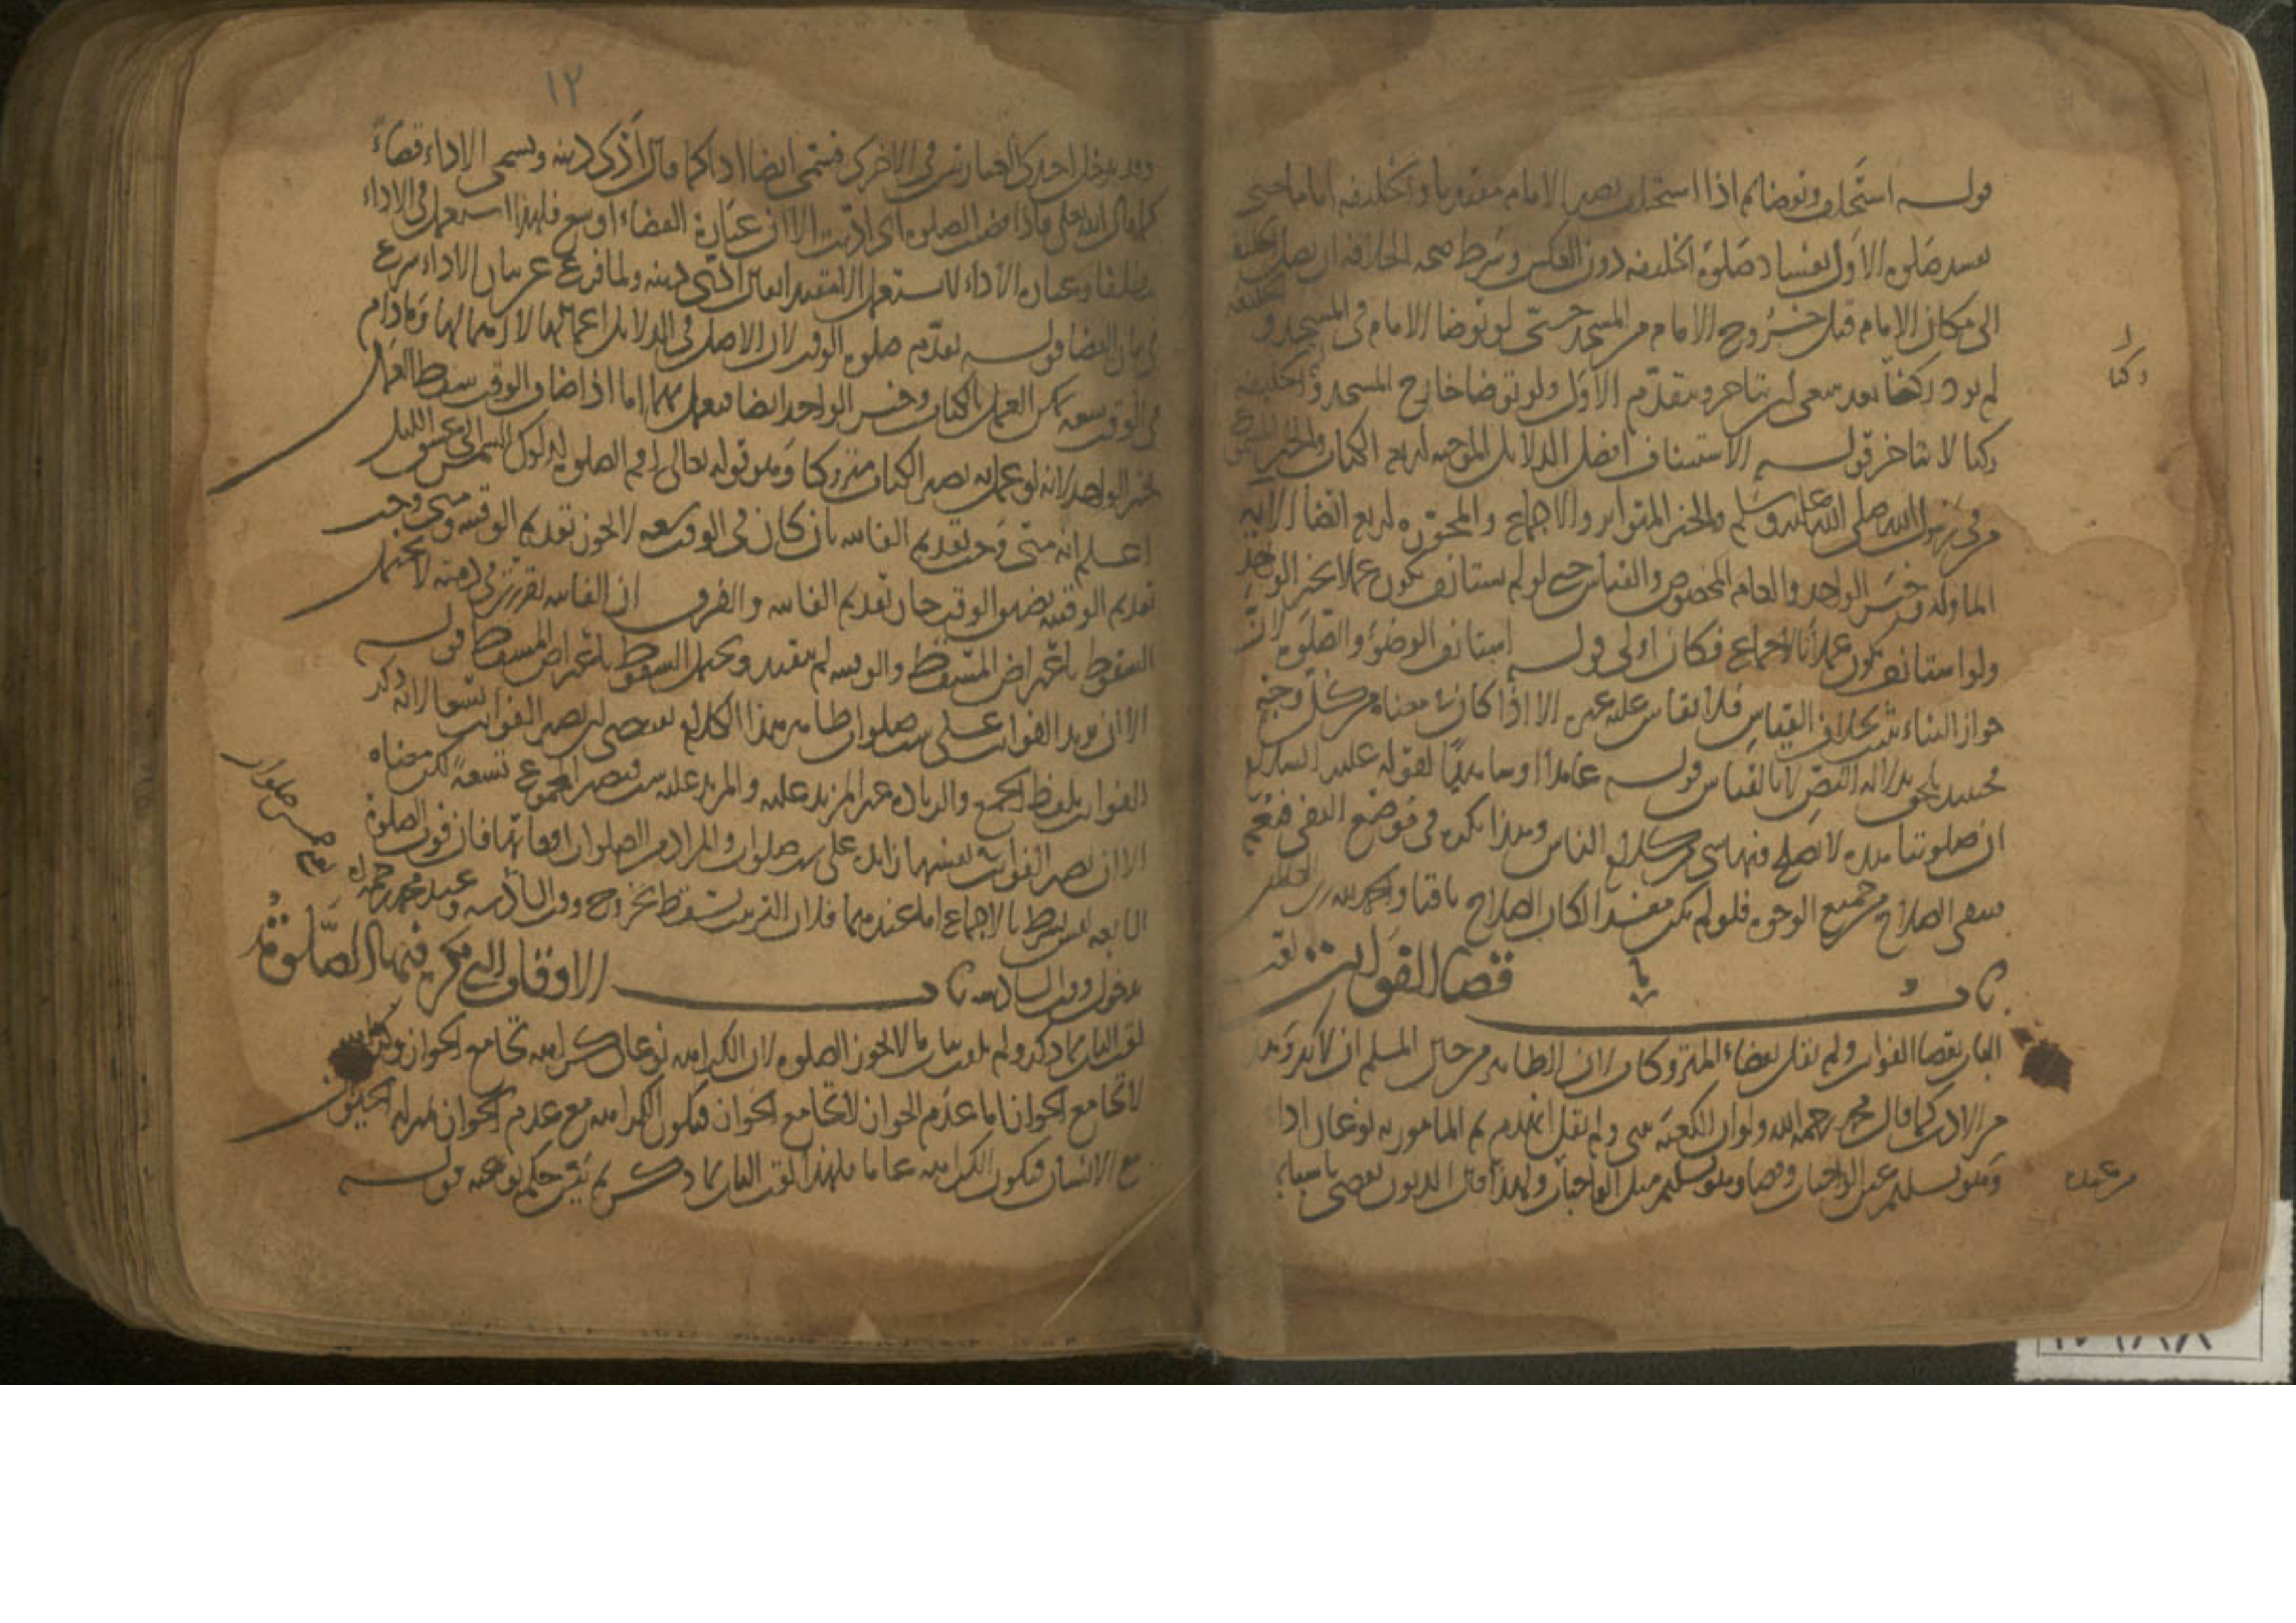 قوله استخلف وتوضا ثم اذا استخلف يصير الامام مقتديا والخليفة اماما حتى
تفسد صلوة الاول بفساد صلوة الخليفة دون العكس وشرط صحة الخلافة ان يصل الخليفة
الى مكان الامام قبل خروج الامام من المسجد حتى لو توضا الامام في المسجد و
لم يود ركنا بعد سعى ان يتاخر ويتقدم الاول ولو توضا خارج المسجد والخليفة
ركنا لا يتاخر قوله الاستيناف افضل الدلايل الموجبة اربع الكتاب والخبر المسموع
من في رسول الله صلى الله عليه وسلم والخبر المتواتر والاجماع والمجوزة اربع ايضا الاية
الماولة وخبر الواحد والعام المخصوص والقياس حتى لو لم يستانف يكون عملا بخبر الواحد
ولو استانف يكون عملا بالاجماع فكان اولى قوله استانف الوضوء والصلوة لان
جواز البناء ثبت بخلاف القياس فلا يقاس عليه غيره الا اذا كان في معناه من كل وجه
فحينئذ يلحق بدلالة النص لا بالقياس قوله عامدا او ساهيا لقوله عليه السلام
ان صلوتنا هذه لا يصلح فيها شي من كلام الناس وهذا نكرة في موضع النفي فتعم
فينتفي الصلاح من جميع الوجوه فلو لم يكن مفسدا لكان الصلاح باقيا والحمد لله رب العالمين
باب قضا الفوايت لقب
الباب بقضا الفوايت ولم يقل بقضاء المتروكات لان الظاهر من حال المسلم ان لا يترك وهذا
من الادب كما قال محمد رحمه الله ولو ان الكعبة تبنى ولم يقل انهدم ثم المامور به نوعان ادا
وهو تسليم عين الواجبات وقضا وهو تسليم مثل الواجبات ولهذا قال الديون تقضى باسبابها
ركنا
من عنده
١٢
وقد يدخل احدى العبارتين في الاخرى فتسمى ايضا ادا كما قال ادى دينه ويسمى الاداء قضاء
كما قال الله تعالى فاذا قضيت الصلوة اي اديت الا ان عبارة القضاء اوسع فلهذا استعمل في الاداء
مطلقا وعبارة الاداء لا يستعمل الا مقيدا يقال ادى دينه ولما فرغ عن بيان الاداء شرع
في بيان القضا قوله تقدم صلوة الوقت لان الاصل في الدلايل اعمالها لا اهمالها وما دام
في الوقت سعة يمكن العمل بالكتاب وخبر الواحد ايضا فيعمل بهما اما اذا ضاق الوقت سقط العمل
بخبر الواحد لانه لو عمل به يصير الكتاب متروكا وهو قوله تعالى اقم الصلوة لدلوك الشمس الى غسق الليل
اعلم انه متى وجب تقديم الفايتة بان كان في الوقت سعة لا يجوز تقديم الوقتية ومتى وجب
تقديم الوقتية بضيق الوقت جاز تقديم الفايتة والفرق ان الفايتة تقررت في ذمته لا يحتمل
السقوط باعتراض المسقط والوقتية لم يتقرر ويحتمل السقوط باعتراض المسقط قوله
الا ان يزيد الفوايت على ست صلوات ظاهر هذا الكلام يقتضى ان يصير الفوايت تسعا لانه ذكر
الفوايت بلفظ الجمع والزيادة غير المزيد عليه والمزيد عليه ست فيصير المجموع تسعة لكن معناه
الا ان يصير الفوايت بنفسها زايدة على ست صلوات والمراد من الصلوات اوقاتها فان فوت الصلوة
السابعة ليس بشرط بالاجماع اما عندهما فلان الترتيب يسقط بخروج وقت السادسة وعند محمد رحمه الله
بدخول وقت السادسة باب الاوقات التي تكره فيها الصلوة
لقب الباب بما ذكر ولم يلقب بباب ما لا يجوز الصلوة لان الكراهة نوعان كراهة تجامع الجواز وكراهة
لا تجامع الجواز اما عدم الجواز لا تجامع الجواز فيكون الكراهة مع عدم الجواز بمنزلة الحيوان
مع الانسان فيكون الكراهة عاما فلهذا لقب الباب بما ذكر ثم بين حكم نوعيه قوله
خمس صلوات